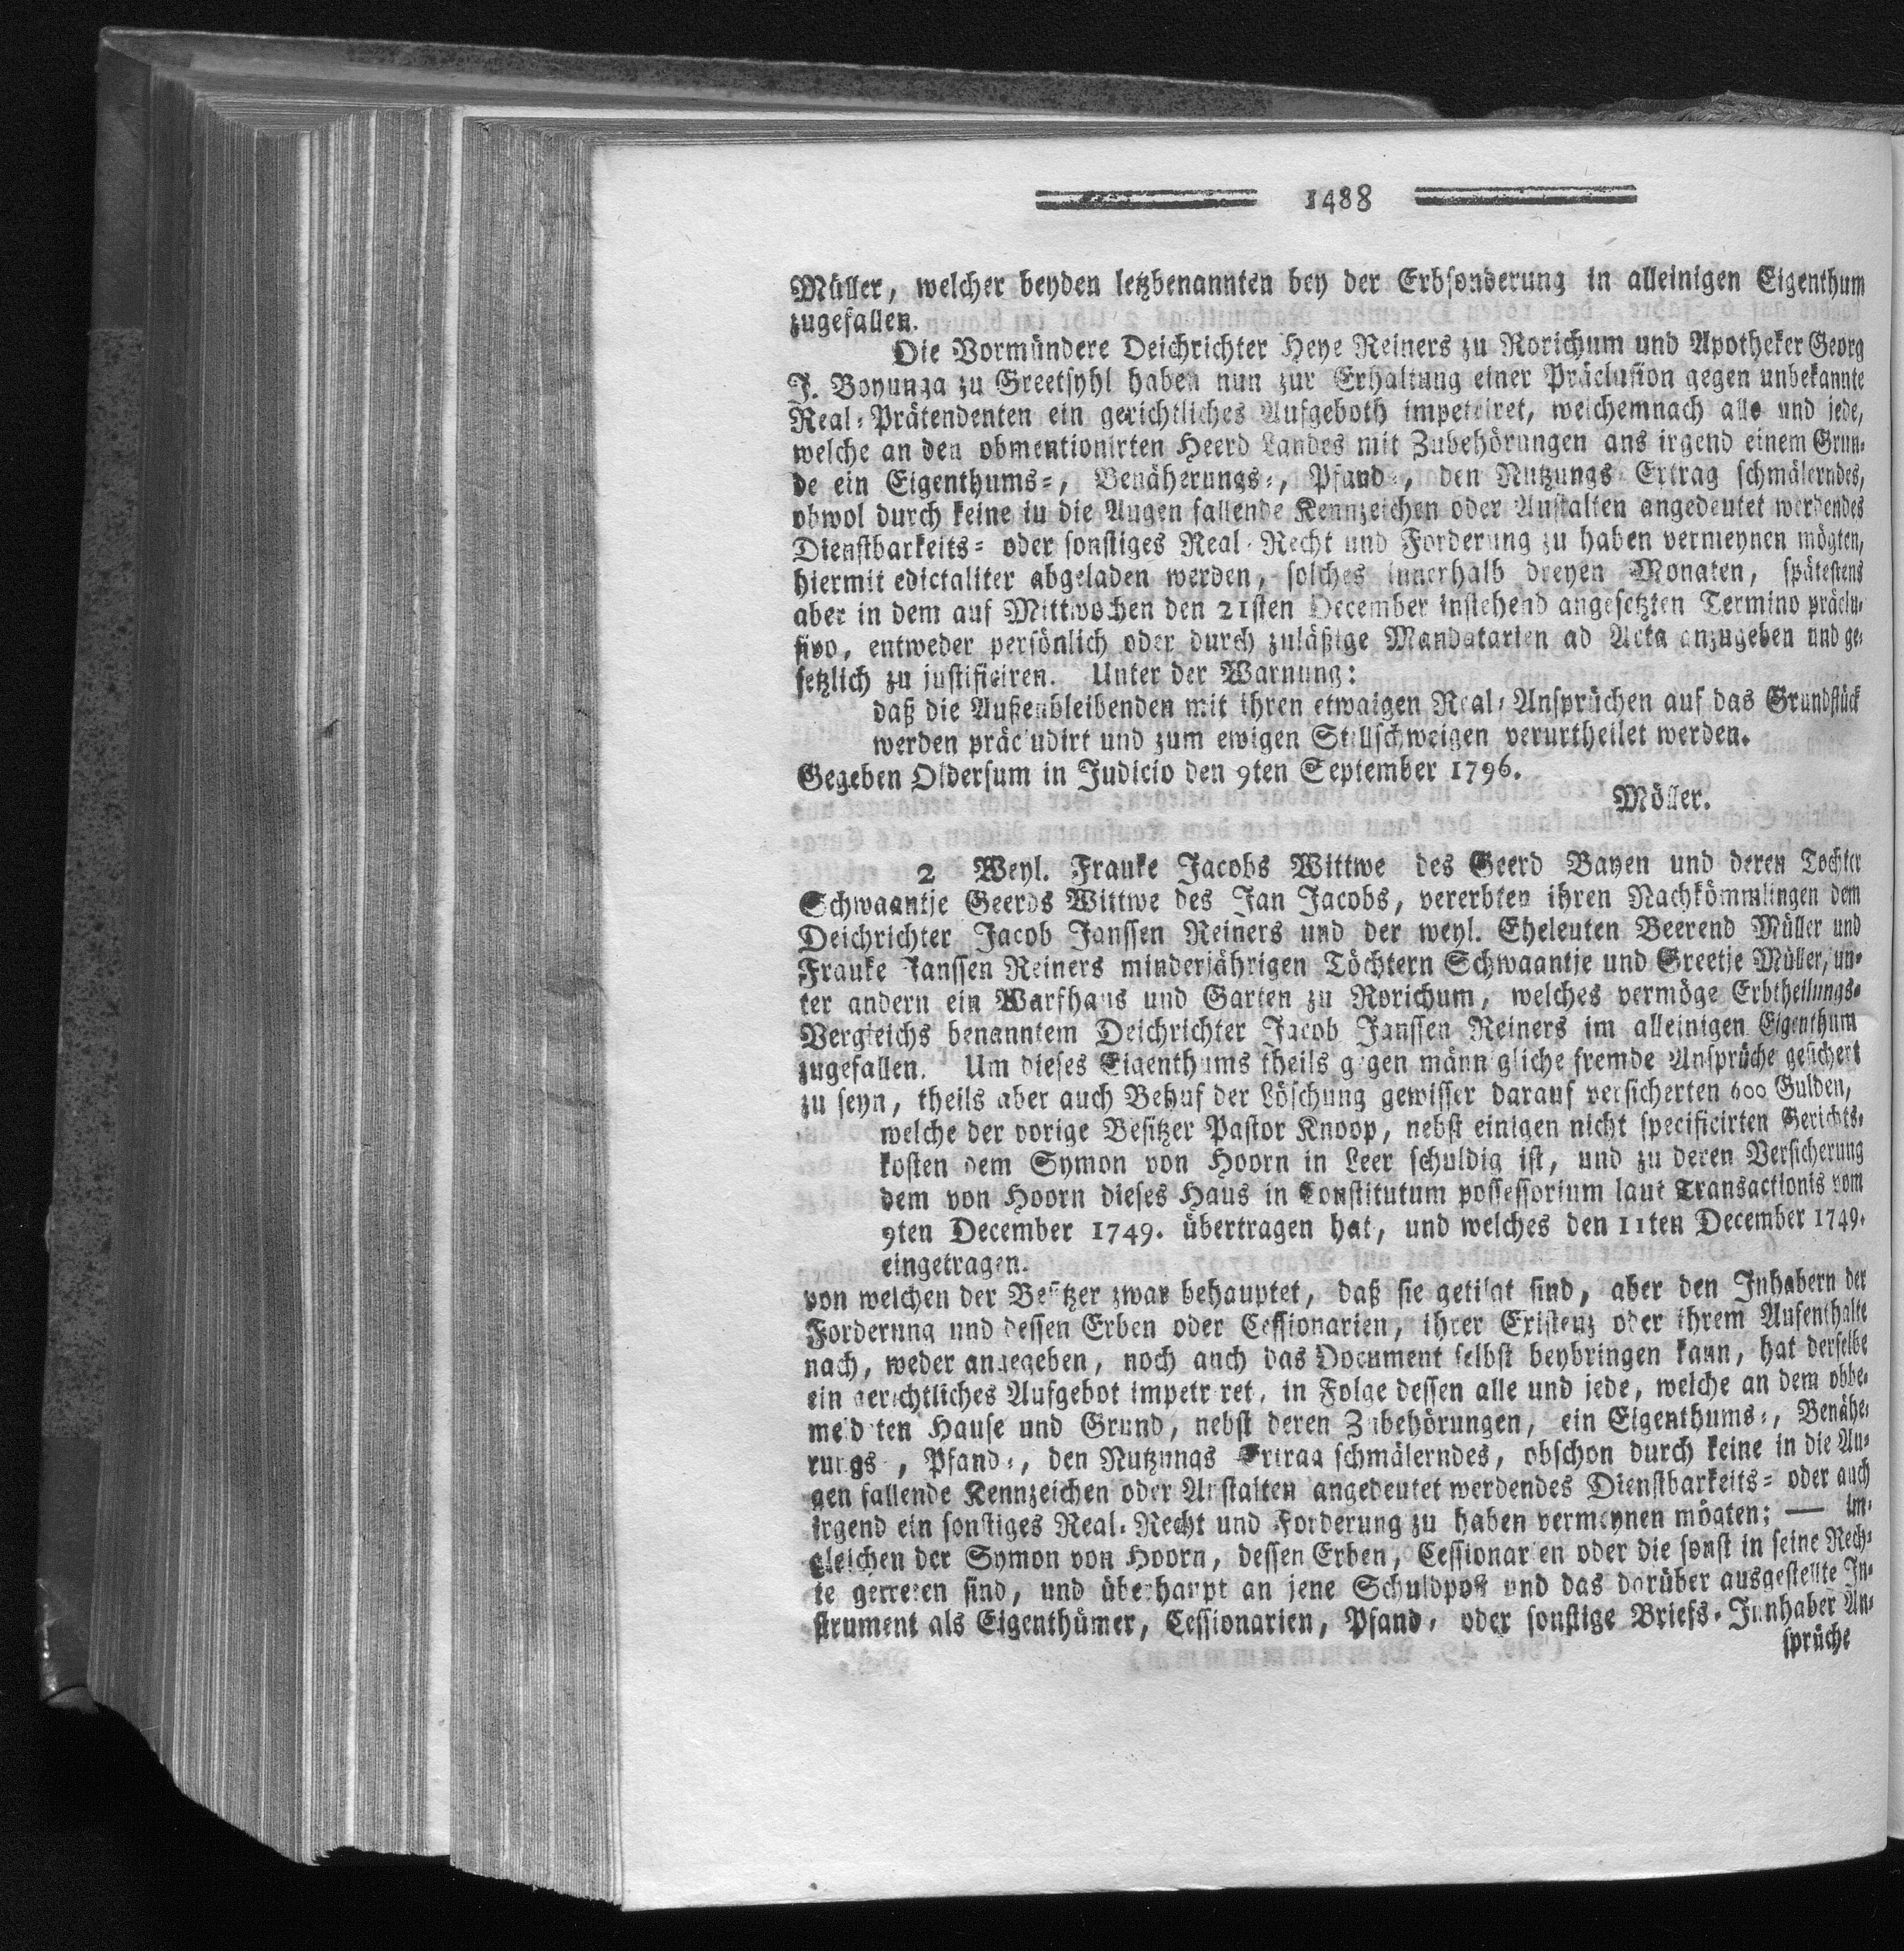 1488
Müller, welcher beyden letzbenannten bey der Erbsonderung in alleinigen Eigenthum
zugefallen.
Die Vormündere Deichrichter Heye Reiners zu Rorichum und Apotheker Georg
J. Boyunga zu Greetsyhl haben nun zur Erhaltung einer Präclusion gegen unbekannte
Real-Prätendenten ein gerichtliches Aufgeboth impetriret, welchemnach alle und jede,
welche an den obmentionirten Heerd Landes mit Zubehörungen ans irgend einem Grun-
de ein Eigenthums-, Benäherungs-, Pfand-, den Nutzungs Ertrag schmälerndes,
obwol durch keine in die Augen fallende Kennzeichen oder Anstalten angedeutet werdendes
Dienstbarkeits- oder sonstiges Real-Recht und Forderung zu haben vermeynen mögten,
hiermit edictaliter abgeladen werden, solches innerhalb dreyen Monaten, spätestens
aber in dem auf Mittwochen den 21sten December instehend angesetzten Termino präclu-
sivo, entweder persönlich oder durch zuläßige Mandatarien ad Acta anzugeben und ge-
setzlich zu justificiren. Unter der Warnung:
daß die Außenbleibenden mit ihren etwaigen Real-Ansprüchen auf das Grundstück
werden präcludirt und zum ewigen Stillschweigen verurtheilet werden.
Gegeben Oldersum in Judicio den 9ten September 1796.
Möller.
2 Weyl. Frauke Jacobs Wittwe des Geerd Bayen und deren Tochter
Schwaantje Geerds Wittwe des Jan Jacobs, vererbten ihren Nachkömmlingen dem
Deichrichter Jacob Janssen Reiners und der weyl. Eheleuten Beerend Müller und
Frauke Janssen Reiners minderjährigen Töchtern Schwaantje und Greetje Müller, un-
ter andern ein Warfhaus und Garten zu Rorichum, welches vermöge Erbtheilungs-
Vergleichs benanntem Deichrichter Jacob Janssen Reiners im alleinigen Eigenthum
zugefallen. Um dieses Eigenthums theils gegen männigliche fremde Ansprüche gesichert
zu seyn, theils aber auch Behuf der Löschung gewisser darauf versicherten 600 Gulden,
welche der vorige Besitzer Pastor Knoop, nebst einigen nicht specificirten Gerichts-
kosten dem Symon von Hoorn in Leer schuldig ist, und zu deren Versicherung
dem von Hoorn dieses Haus in Constitutum possessorium laut Transactionis vom
9ten December 1749. übertragen hat, und welches den 11ten December 1749.
eingetragen.
von welchen der Besitzer zwar behauptet, daß sie getilgt sind, aber den Inhabern der
Forderung und dessen Erben oder Cessionarien, ihrer Existenz oder ihrem Aufenthalte
nach, weder angegeben, noch auch das Document selbst beybringen kann, hat derselbe
ein gerichtliches Aufgebot impetriret, in Folge dessen alle und jede, welche an dem obbe-
meldeten Hause und Grund, nebst deren Zubehörungen, ein Eigenthums-, Benähe-
rungs-, Pfand-, den Nutzungs Ertrag schmälerndes, obschon durch keine in die Au-
gen fallende Kennzeichen oder Anstalten angedeutet werdendes Dienstbarkeits- oder auch
irgend ein sonstiges Real-Recht und Forderung zu haben vermeynen mögten; — im-
gleichen der Symon von Hoorn, dessen Erben, Cessionarien oder die sonst in seine Rech-
te getreten sind, und überhaupt an jene Schuldpost und das darüber ausgestellte In-
strument als Eigenthümer, Cessionarien, Pfand- oder sonstige Briefs-Innhaber An-
sprüche